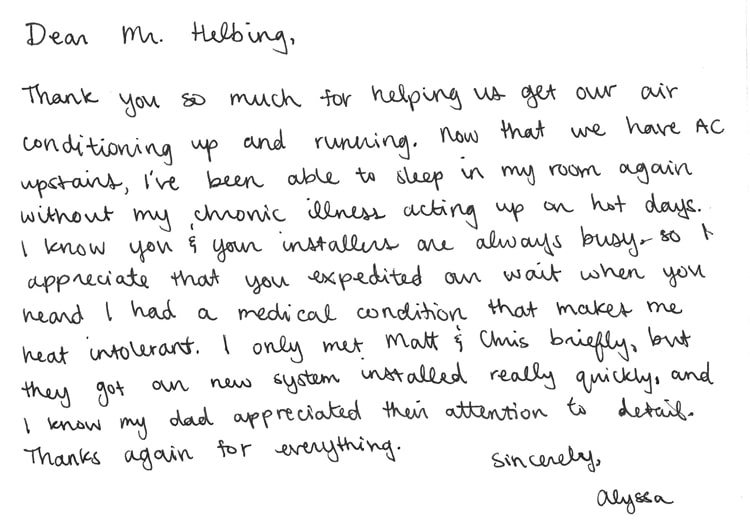 Dear Mr. Helbing,
Thank you so much for helping us get our air
conditioning up and running. Now that we have AC
upstairs, I've been able to sleep in my room again
without my chronic illness acting up on hot days.
I know you & your installers are always busy - so I
appreciate that you expedited our wait when you
heard I had a medical condition that makes me
heat intolerant. I only met Matt & Chris briefly, but
they got our new system installed really quickly, and
I know my dad appreciated their attention to detail.
Thanks again for everything.
Sincerely,
Alyssa